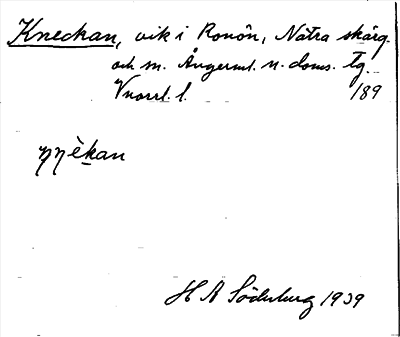 Kneckan, vik i Ronön, Nätra skärg.
och sn. Ångerml. n. doms. tg.
Vnorrl. l. 189
ŋŋèkan
H A Söderburg 1939